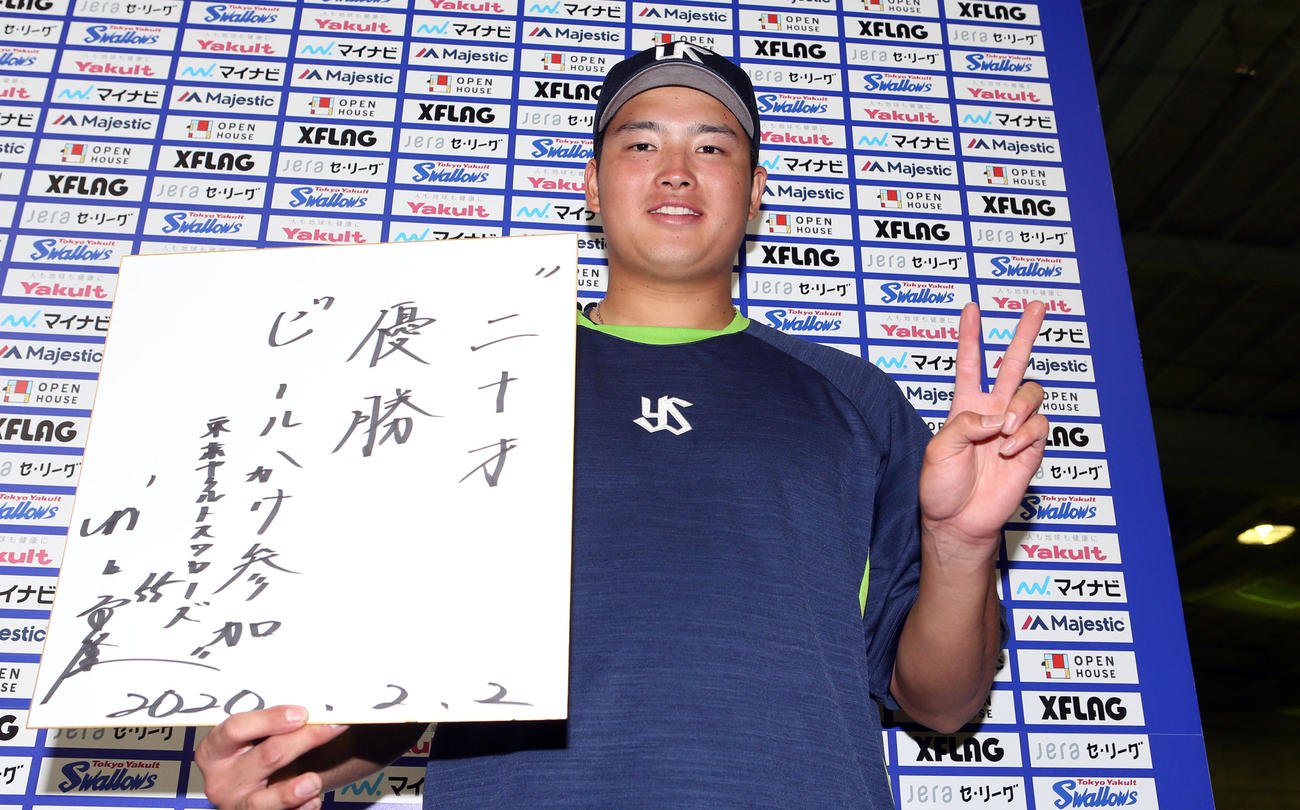 〝二十才
優勝
ビールかけ参加〟
東京ヤクルトスワローズ
55
2020.2.2
YS
人も地球も健康に
Yakult
マイナビ
Majestic
OPEN HOUSE
XFLAG
JERA セ・リーグ
Tokyo Yakult
Swallows